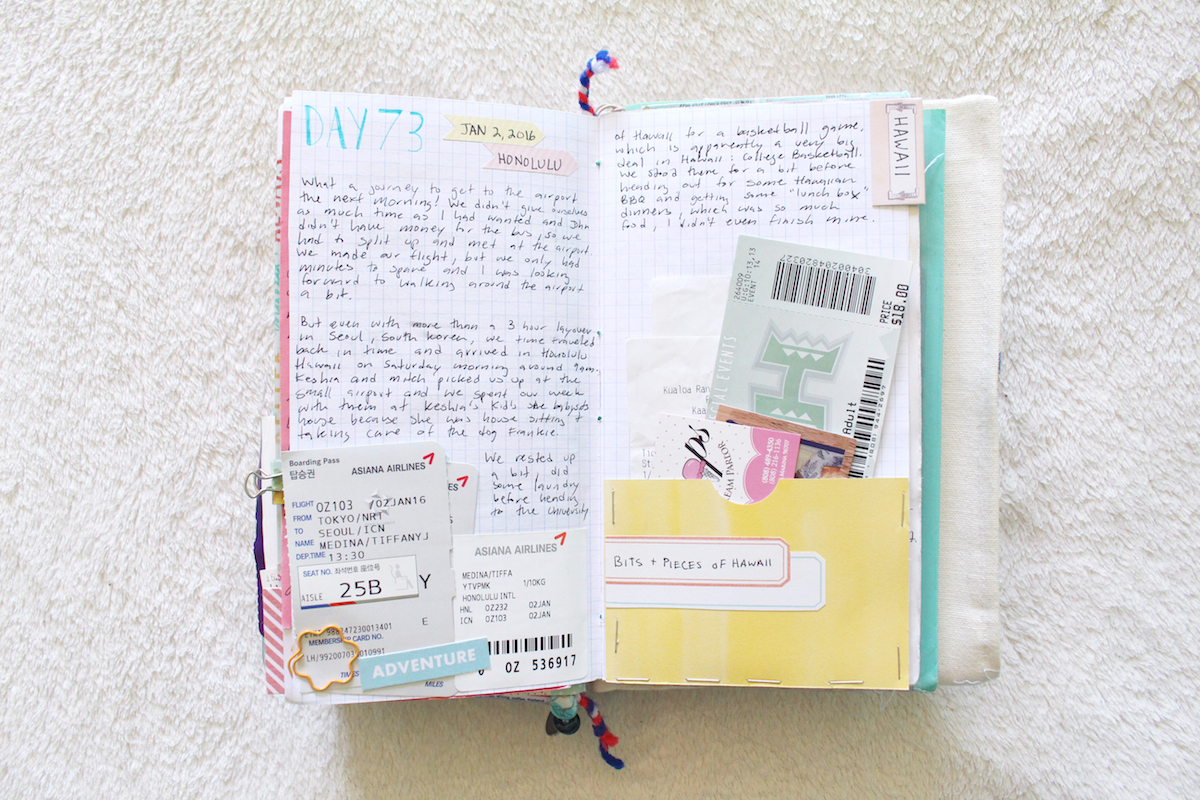 DAY 73
JAN 2, 2016
HONOLULU
What a journey to get to the airport
the next morning! We didn't give ourselves
as much time as I had wanted and John
didn't have money for the bus, so we
had to split up and met at the airport.
We made our flight, but we only had
minutes to spare and I was looking
forward to walking around the airport
a bit.
But even with more than a 3 hour layover
in Seoul, South Korea, we time traveled
back in time and arrived in Honolulu
Hawaii on Saturday morning around 9am.
Keshia and Mitch picked us up at the
small airport and we spent our week
with them at Keshia's kid's she babysits
house because she was house sitting +
taking care of the dog Frankie.
We rested up
a bit, did
some laundry
before heading
to the University
Boarding Pass
탑승권
ASIANA AIRLINES
FLIGHT OZ103 02JAN16
FROM TOKYO/NRT
TO SEOUL/ICN
NAME MEDINA/TIFFANYJ
DEP.TIME 13:30
SEAT NO. 좌석번호 座位号
AISLE 25B
Y
E
MEMBERSHIP CARD NO.
TIMES
MILES
ADVENTURE
ASIANA AIRLINES
MEDINA/TIFFA
YTVPMK 1/10KG
HONOLULU INTL
HNL OZ232 02JAN
ICN OZ103 02JAN
OZ 536917
of Hawaii for a basketball game,
which is apparently a very big
deal in Hawaii: College Basketball.
We stood there for a bit before
heading out for some Hawaiian
BBQ and getting some "lunch box"
dinners, which was so much
food, I didn't even finish mine.
HAWAII
30400204820327
264009
UG:10:13,13
EVENT 14
PRICE
$18.00
EVENTS
H
Adult
(808) 944-2697
Kualoa Ran
Kaa
EAM PARLOR
(808) 489-4350
(808) 216-1136
BITS + PIECES OF HAWAII